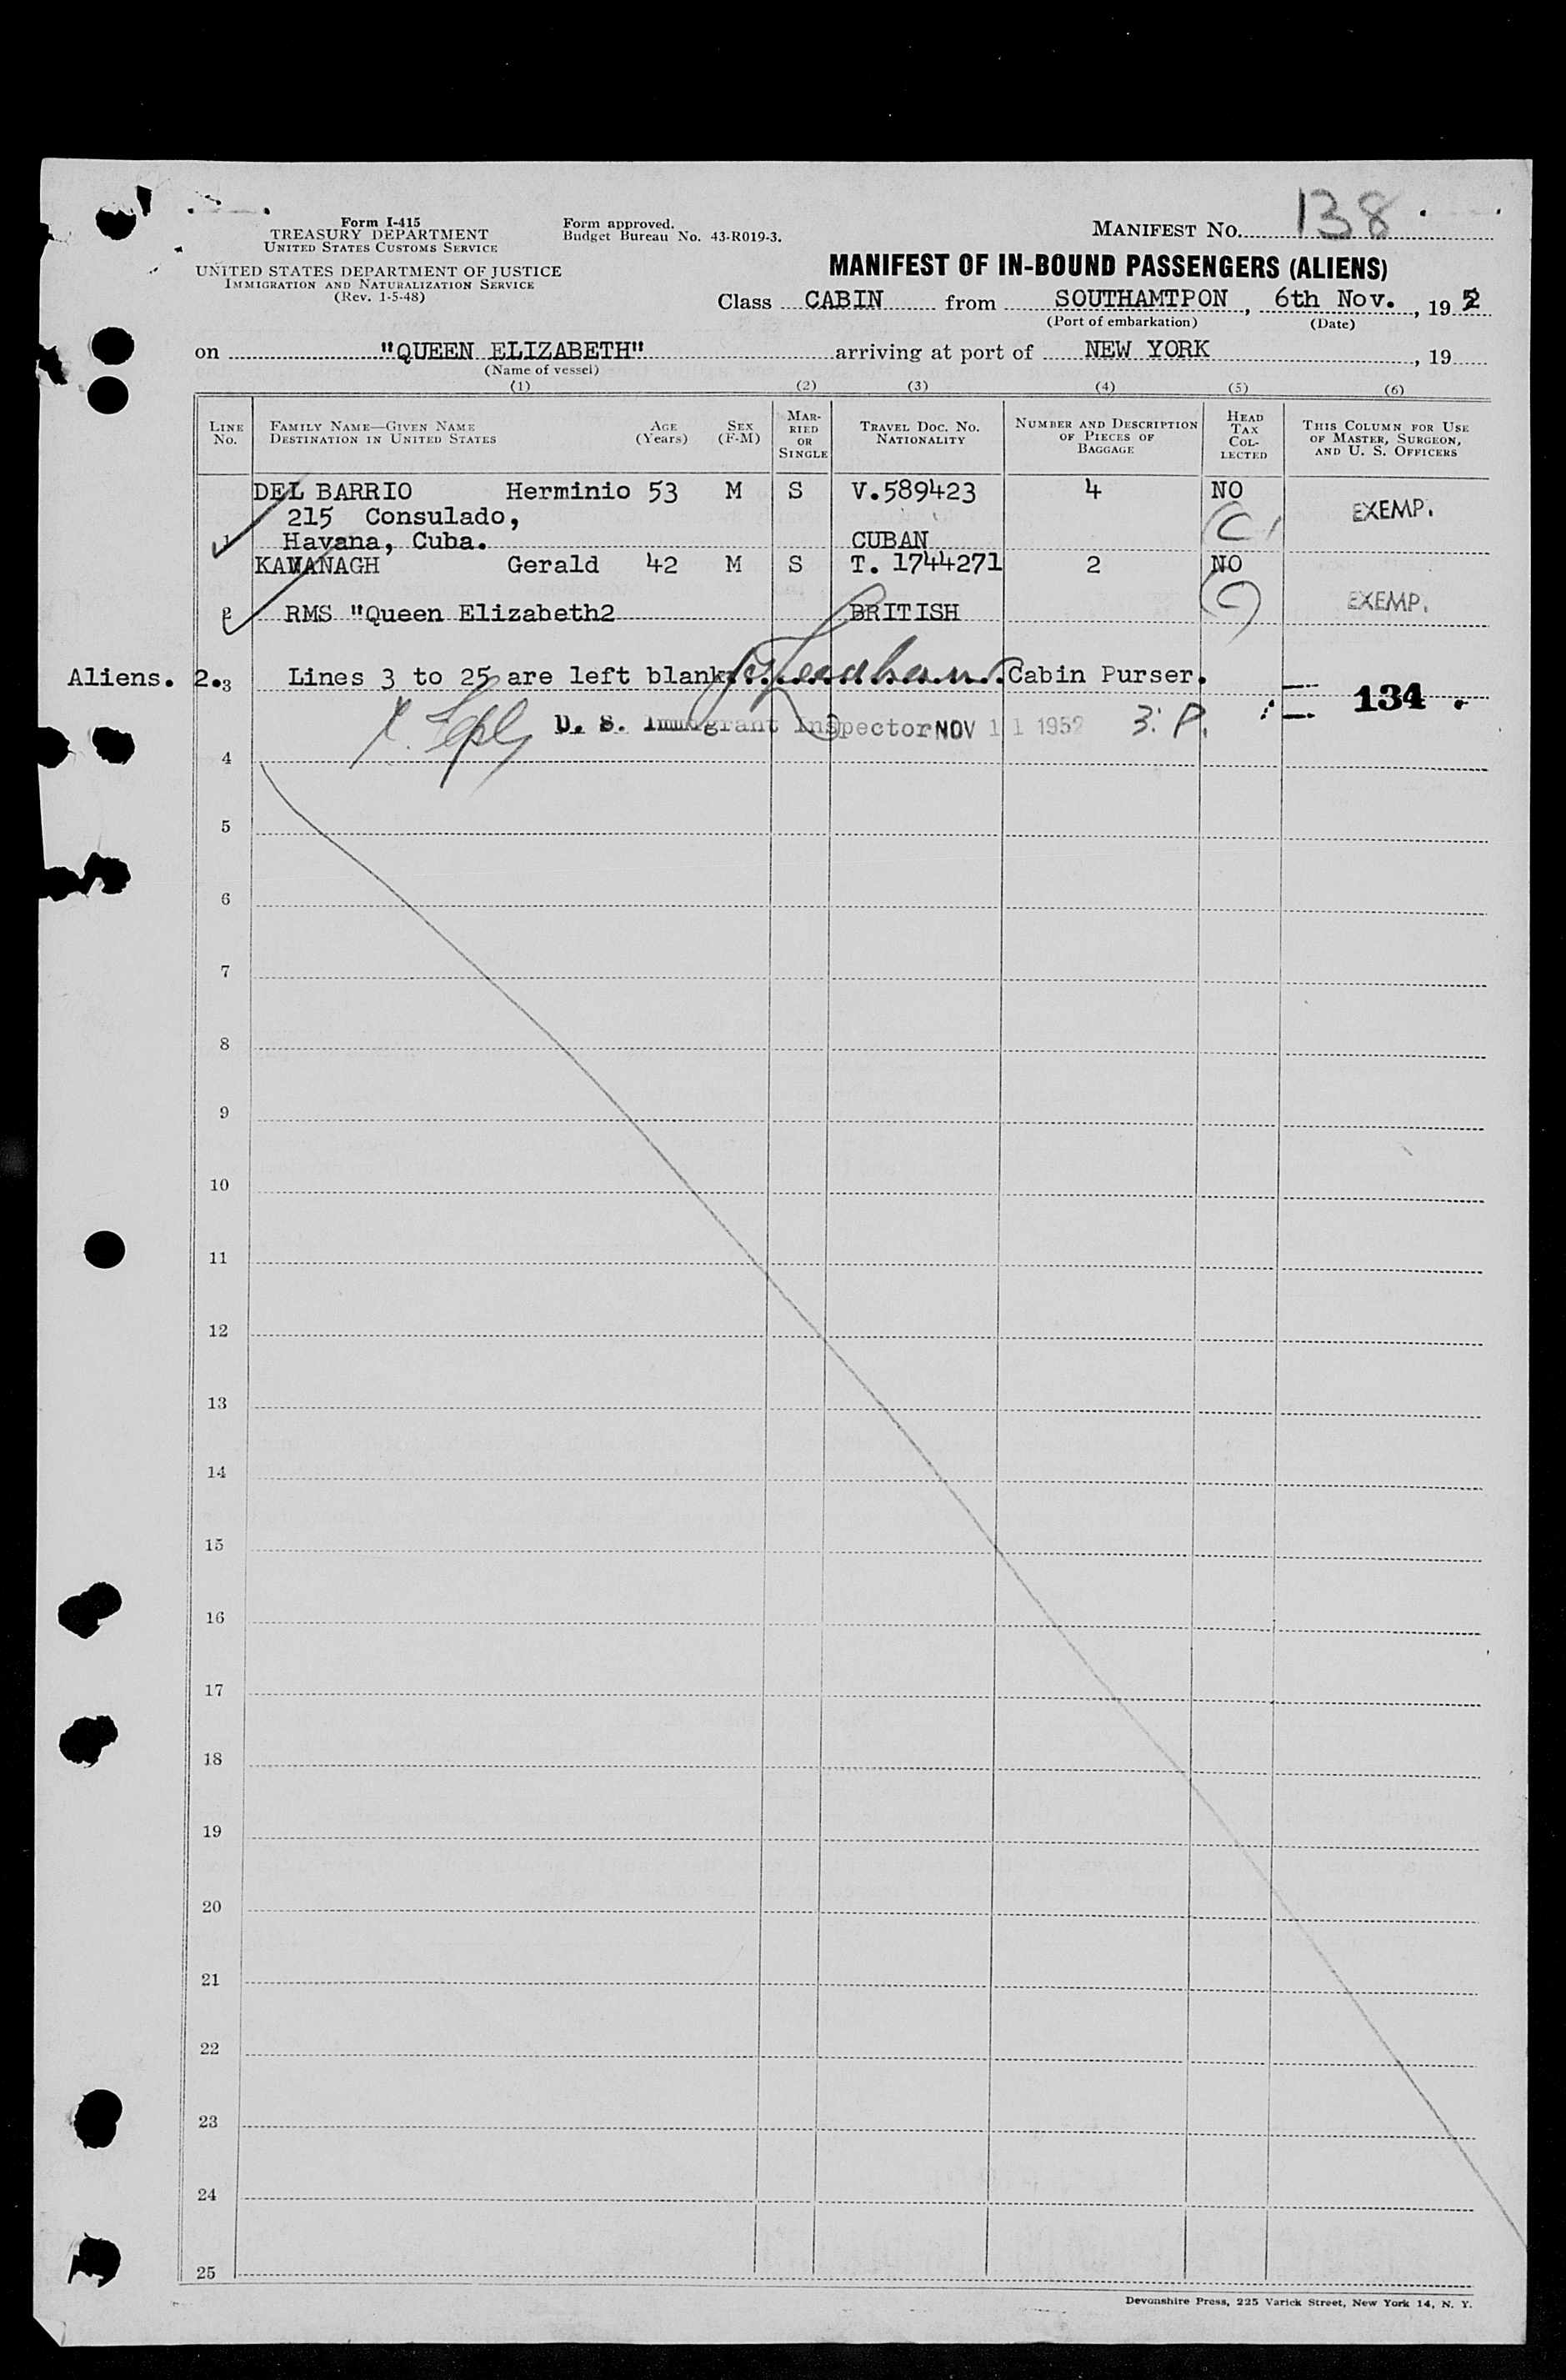 Form I-415
TREASURY DEPARTMENT
UNITED STATES CUSTOMS SERVICE
UNITED STATES DEPARTMENT OF JUSTICE
IMMIGRATION AND NATURALIZATION SERVICE
(Rev. 1-5-48)
Form approved.
Budget Bureau No. 43-R019-3.
MANIFEST NO. 138
MANIFEST OF IN-BOUND PASSENGERS (ALIENS)
Class CABIN from SOUTHAMTPON, 6th Nov., 19 52
(Port of embarkation) (Date)
on "QUEEN ELIZABETH" arriving at port of NEW YORK, 19
(Name of vessel)
(1) (2) (3) (4) (5) (6)
LINE No.
FAMILY NAME—GIVEN NAME
DESTINATION IN UNITED STATES
AGE (Years)
SEX (F-M)
MARRIED OR SINGLE
TRAVEL DOC. NO.
NATIONALITY
NUMBER AND DESCRIPTION
OF PIECES OF
BAGGAGE
HEAD TAX COLLECTED
THIS COLUMN FOR USE
OF MASTER, SURGEON,
AND U. S. OFFICERS
DEL BARRIO Herminio 53 M S V.589423 4 NO
215 Consulado, EXEMP.
1 Havana, Cuba. CUBAN C
KAVANAGH Gerald 42 M S T. 1744271 2 NO
EXEMP.
2 RMS "Queen Elizabeth2 BRITISH
Aliens. 2. 3 Lines 3 to 25 are left blank Cabin Purser.
134
U. S. Immigrant Inspector NOV 11 1952 3. P.
4
5
6
7
8
9
10
11
12
13
14
15
16
17
18
19
20
21
22
23
24
25
Devonshire Press, 225 Varick Street, New York 14, N. Y.